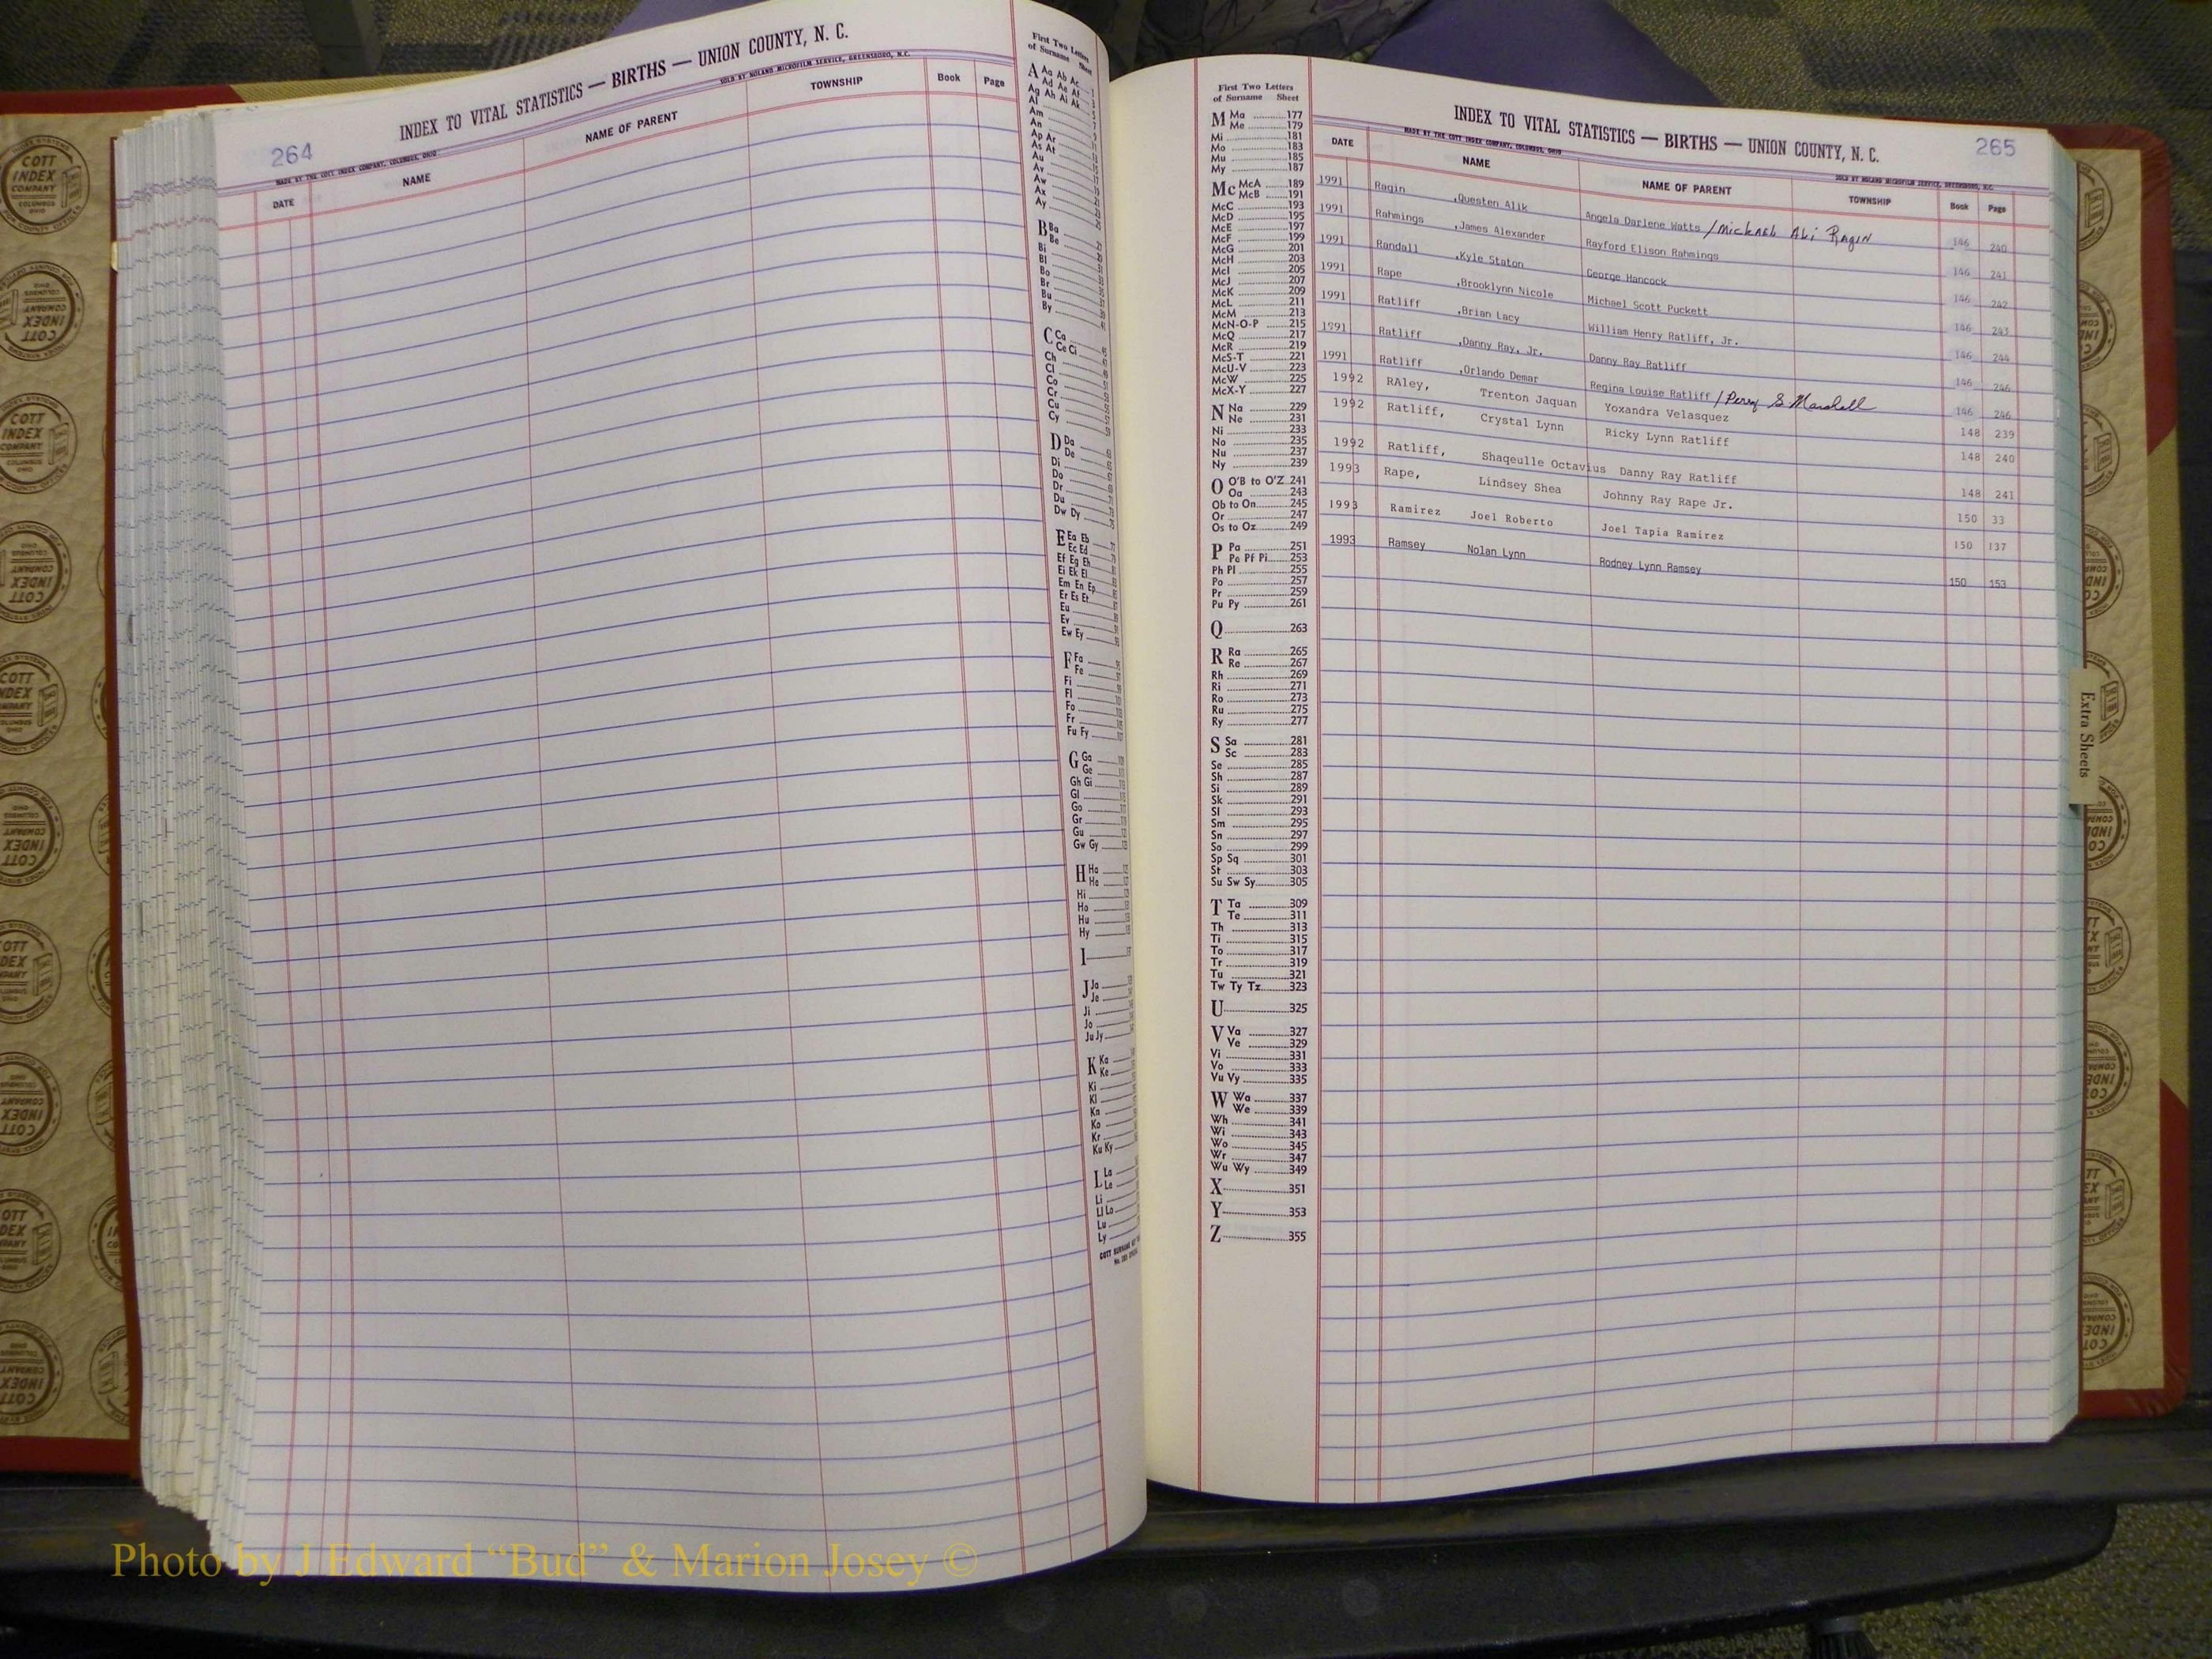 264
INDEX TO VITAL STATISTICS — BIRTHS — UNION COUNTY, N. C.
MADE BY THE COTT INDEX COMPANY, COLUMBUS, OHIO SOLD BY NOLAND MICROFILM SERVICE, GREENSBORO, N.C.
DATE NAME NAME OF PARENT TOWNSHIP Book Page
First Two Letters
of Surname Sheet
A Aa Ab Ac
Ad Ae Af
Ag Ah Ai Ak
Al
Am
An
Ap Ar
As At
Au
Av
Aw
Ax
Ay
B Ba
Be
Bi
Bl
Bo
Br
Bu
By
C Ca
Ce Ci
Ch
Cl
Co
Cr
Cu
Cy
D Da
De
Di
Do
Dr
Du
Dw Dy
E Ea Eb
Ec Ed
Ef Eg Eh
Ei Ek El
Em En Ep
Er Es Et
Eu
Ev
Ew Ey
F Fa
Fe
Fi
Fl
Fo
Fr
Fu Fy
G Ga
Ge
Gh Gi
Gl
Go
Gr
Gu
Gw Gy
H Ha
He
Hi
Ho
Hu
Hy
I
J Ja
Je
Ji
Jo
Ju Jy
K Ka
Ke
Ki
Kl
Kn
Ko
Kr
Ku Ky
L La
Le
Li
Ll Lo
Lu
Ly
First Two Letters
of Surname Sheet
M Ma 177
Me 179
Mi 181
Mo 183
Mu 185
My 187
Mc McA 189
McB 191
McC 193
McD 195
McE 197
McF 199
McG 201
McH 203
McI 205
McJ 207
McK 209
McL 211
McM 213
McN-O-P 215
McQ 217
McR 219
McS-T 221
McU-V 223
McW 225
McX-Y 227
N Na 229
Ne 231
Ni 233
No 235
Nu 237
Ny 239
O O'B to O'Z 241
Oa 243
Ob to On 245
Or 247
Os to Oz 249
P Pa 251
Pe Pf Pi 253
Ph Pl 255
Po 257
Pr 259
Pu Py 261
Q 263
R Ra 265
Re 267
Rh 269
Ri 271
Ro 273
Ru 275
Ry 277
S Sa 281
Sc 283
Se 285
Sh 287
Si 289
Sk 291
Sl 293
Sm 295
Sn 297
So 299
Sp Sq 301
St 303
Su Sw Sy 305
T Ta 309
Te 311
Th 313
Ti 315
To 317
Tr 319
Tu 321
Tw Ty Tz 323
U 325
V Va 327
Ve 329
Vi 331
Vo 333
Vu Vy 335
W Wa 337
We 339
Wh 341
Wi 343
Wo 345
Wr 347
Wu Wy 349
X 351
Y 353
Z 355
INDEX TO VITAL STATISTICS — BIRTHS — UNION COUNTY, N. C.
265
MADE BY THE COTT INDEX COMPANY, COLUMBUS, OHIO SOLD BY NOLAND MICROFILM SERVICE, GREENSBORO, N.C.
DATE NAME NAME OF PARENT TOWNSHIP Book Page
1991 Ragin ,Questen Alik Angela Darlene Watts / Mickael Ali Ragin 146 240
1991 Rahmings ,James Alexander Rayford Elison Rahmings 146 241
1991 Randall ,Kyle Staton George Hancock 146 242
1991 Rape ,Brooklynn Nicole Michael Scott Puckett 146 243
1991 Ratliff ,Brian Lacy William Henry Ratliff, Jr. 146 244
1991 Ratliff ,Danny Ray, Jr. Danny Ray Ratliff 146 246
1991 Ratliff ,Orlando Demar Regina Louise Ratliff / Percy S Marshall 146 246
1992 RAley, Trenton Jaquan Yoxandra Velasquez 148 239
1992 Ratliff, Crystal Lynn Ricky Lynn Ratliff 148 240
1992 Ratliff, Shaqeulle Octavius Danny Ray Ratliff 148 241
1993 Rape, Lindsey Shea Johnny Ray Rape Jr. 150 33
1993 Ramirez Joel Roberto Joel Tapia Ramirez 150 137
1993 Ramsey Nolan Lynn Rodney Lynn Ramsey 150 153
Extra Sheets
COTT
INDEX
COMPANY
COLUMBUS
OHIO
Photo by J Edward “Bud” & Marion Josey ©